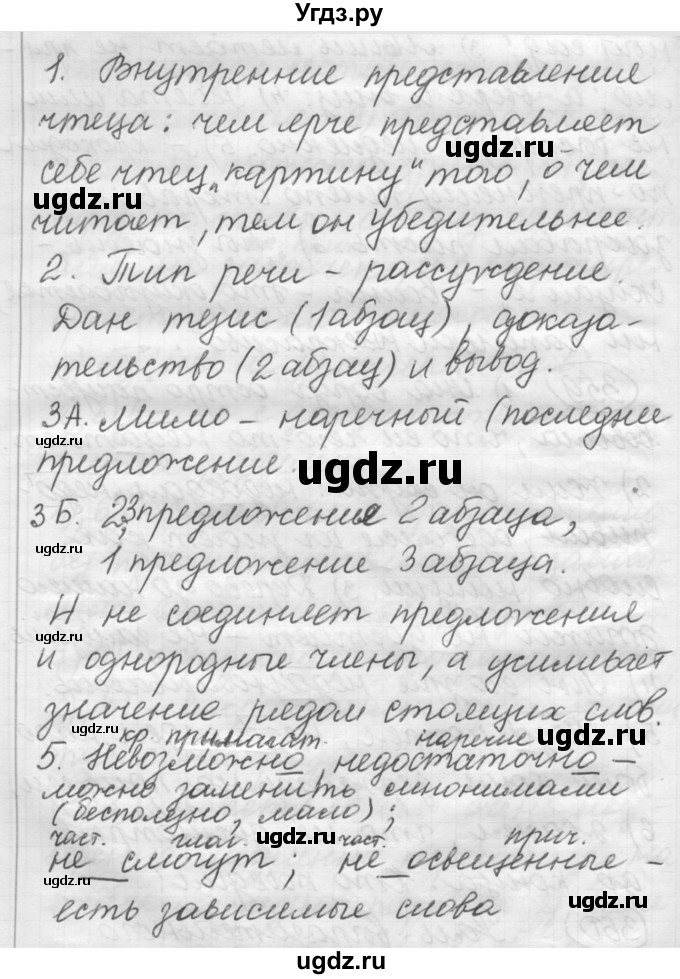 Угдз.ру
1. Внутренние представления
чтеца: чем ярче представляет
ugdz.ru
себе чтец „картину“ того, о чем
ugdz.ru
читает, тем он убедительнее.
2. Тип речи – рассуждение.
Дан тезис (1 абзац), доказа-
тельство (2 абзац) и вывод.
3А. Мимо – наречный (последнее
предложение.
ugdz.ru
3Б. 2,3 предложение 2 абзаца,
ugdz.ru
1 предложение 3 абзаца.
И не соединяет предложения
и однородные члены, а усиливает
значение рядом стоящих слов.
кр. прилагат. наречие
ugdz.ru
5. Невозможно, недостаточно –
можно заменить синонимами
(бесполезно, мало);
част. глаг. част. прич.
ugdz.ru
не смогут; не освещенные –
ugdz.ru
есть зависимые слова
ugdz.ru